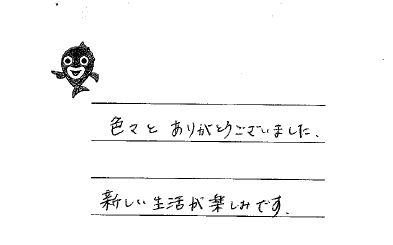 色々と ありがとうございました.
新しい生活が楽しみです.